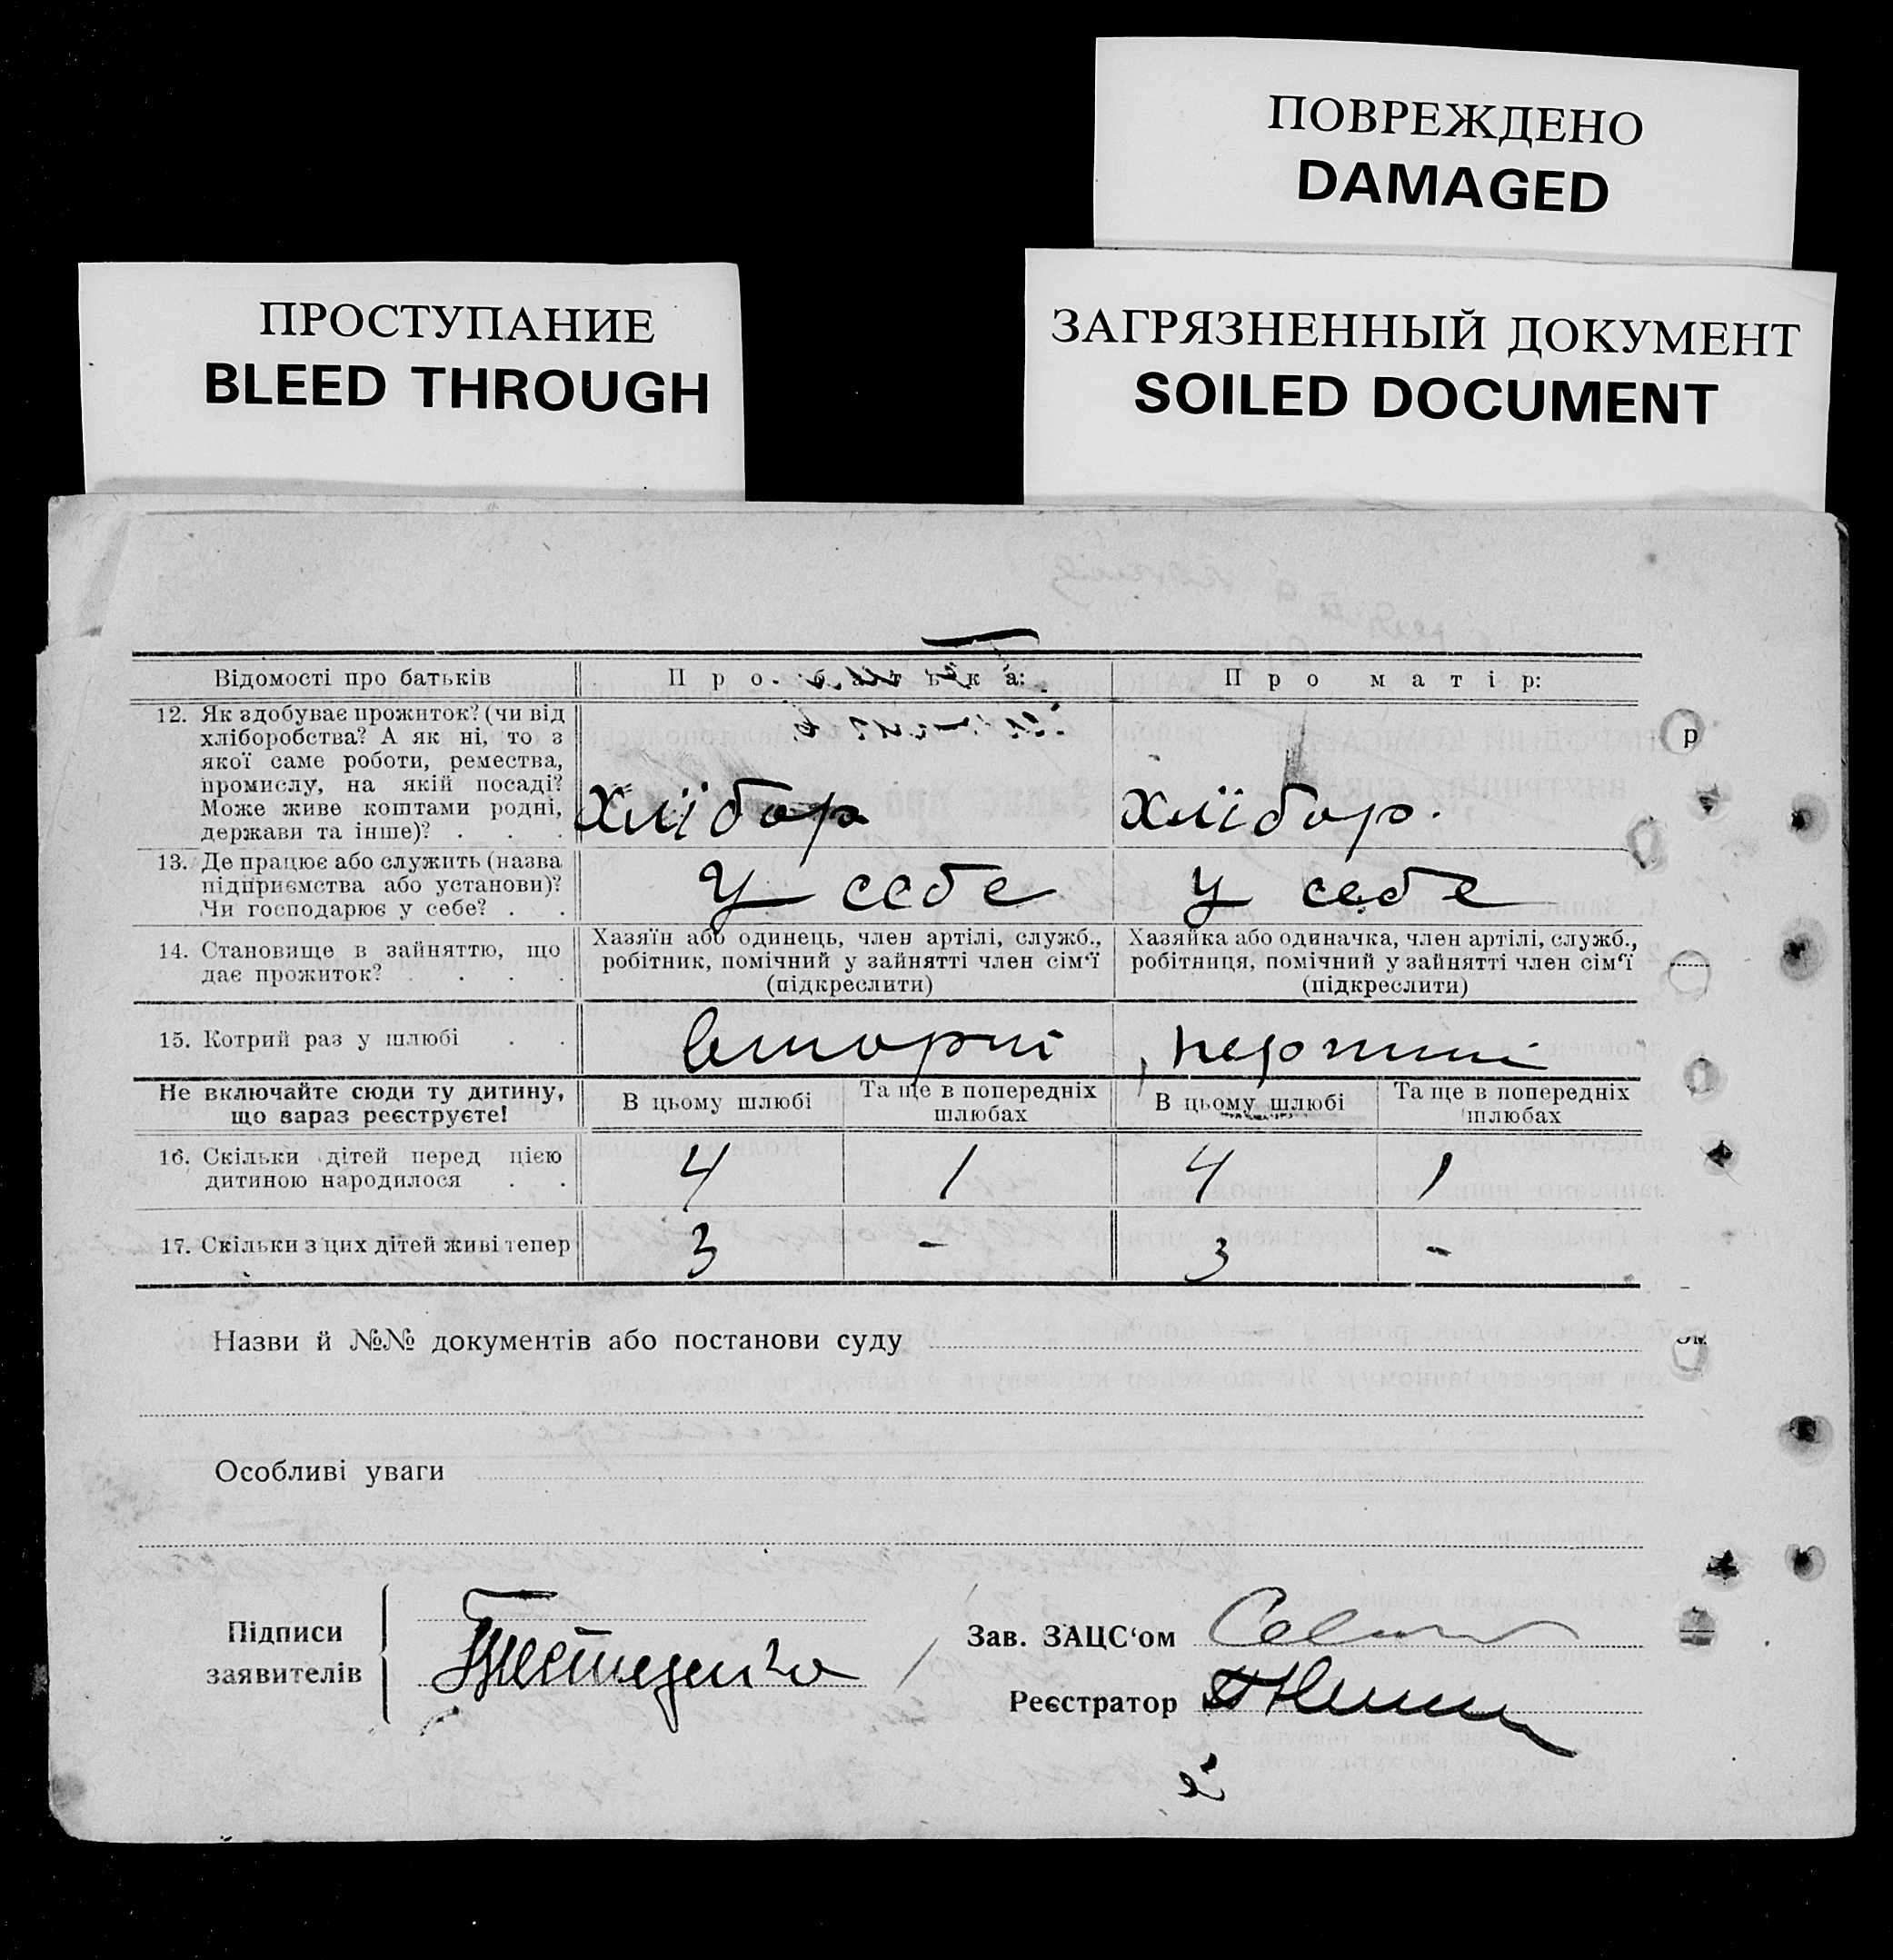 ПОВРЕЖДЕНО
DAMAGED
ПРОСТУПАНИЕ
BLEED THROUGH
ЗАГРЯЗНЕННЫЙ ДОКУМЕНТ
SOILED DOCUMENT
Відомості про батьків
Про батька:
Про матір:
12. Як здобуває прожиток? (чи від
хліборобства? А як ні, то з
якої саме роботи, ремества,
промислу, на якій посаді?
Може живе коштами родні,
держави та інше)? . . .
Хлїбор
Хлїбор.
13. Де працює або служить (назва
підприємства або установи)?
Чи господарює у себе? . .
У себе
У себе
14. Становище в зайняттю, що
дає прожиток? . . . .
Хазяїн або одинець, член артілі, служб.,
робітник, помічний у зайнятті член сім‘ї
(підкреслити)
Хазяйка або одиначка, член артілі, служб.,
робітниця, помічний у зайнятті член сім‘ї
(підкреслити)
15. Котрий раз у шлюбі . .
вторгі
Не включайте сюди ту дитину,
що вараз реєструєте!
В цьому шлюбі
Та ще в попередніх
шлюбах
В цьому шлюбі
Та ще в попередніх
шлюбах
16. Скільки дітей перед цією
дитиною народилося . .
4 1 4 1
17. Скільки з цих дітей живі тепер
3 - 3 -
Назви й №№ документів або постанови суду
Особливі уваги
Підписи
заявителів
Зав. ЗАЦС‘ом
Реєстратор
р